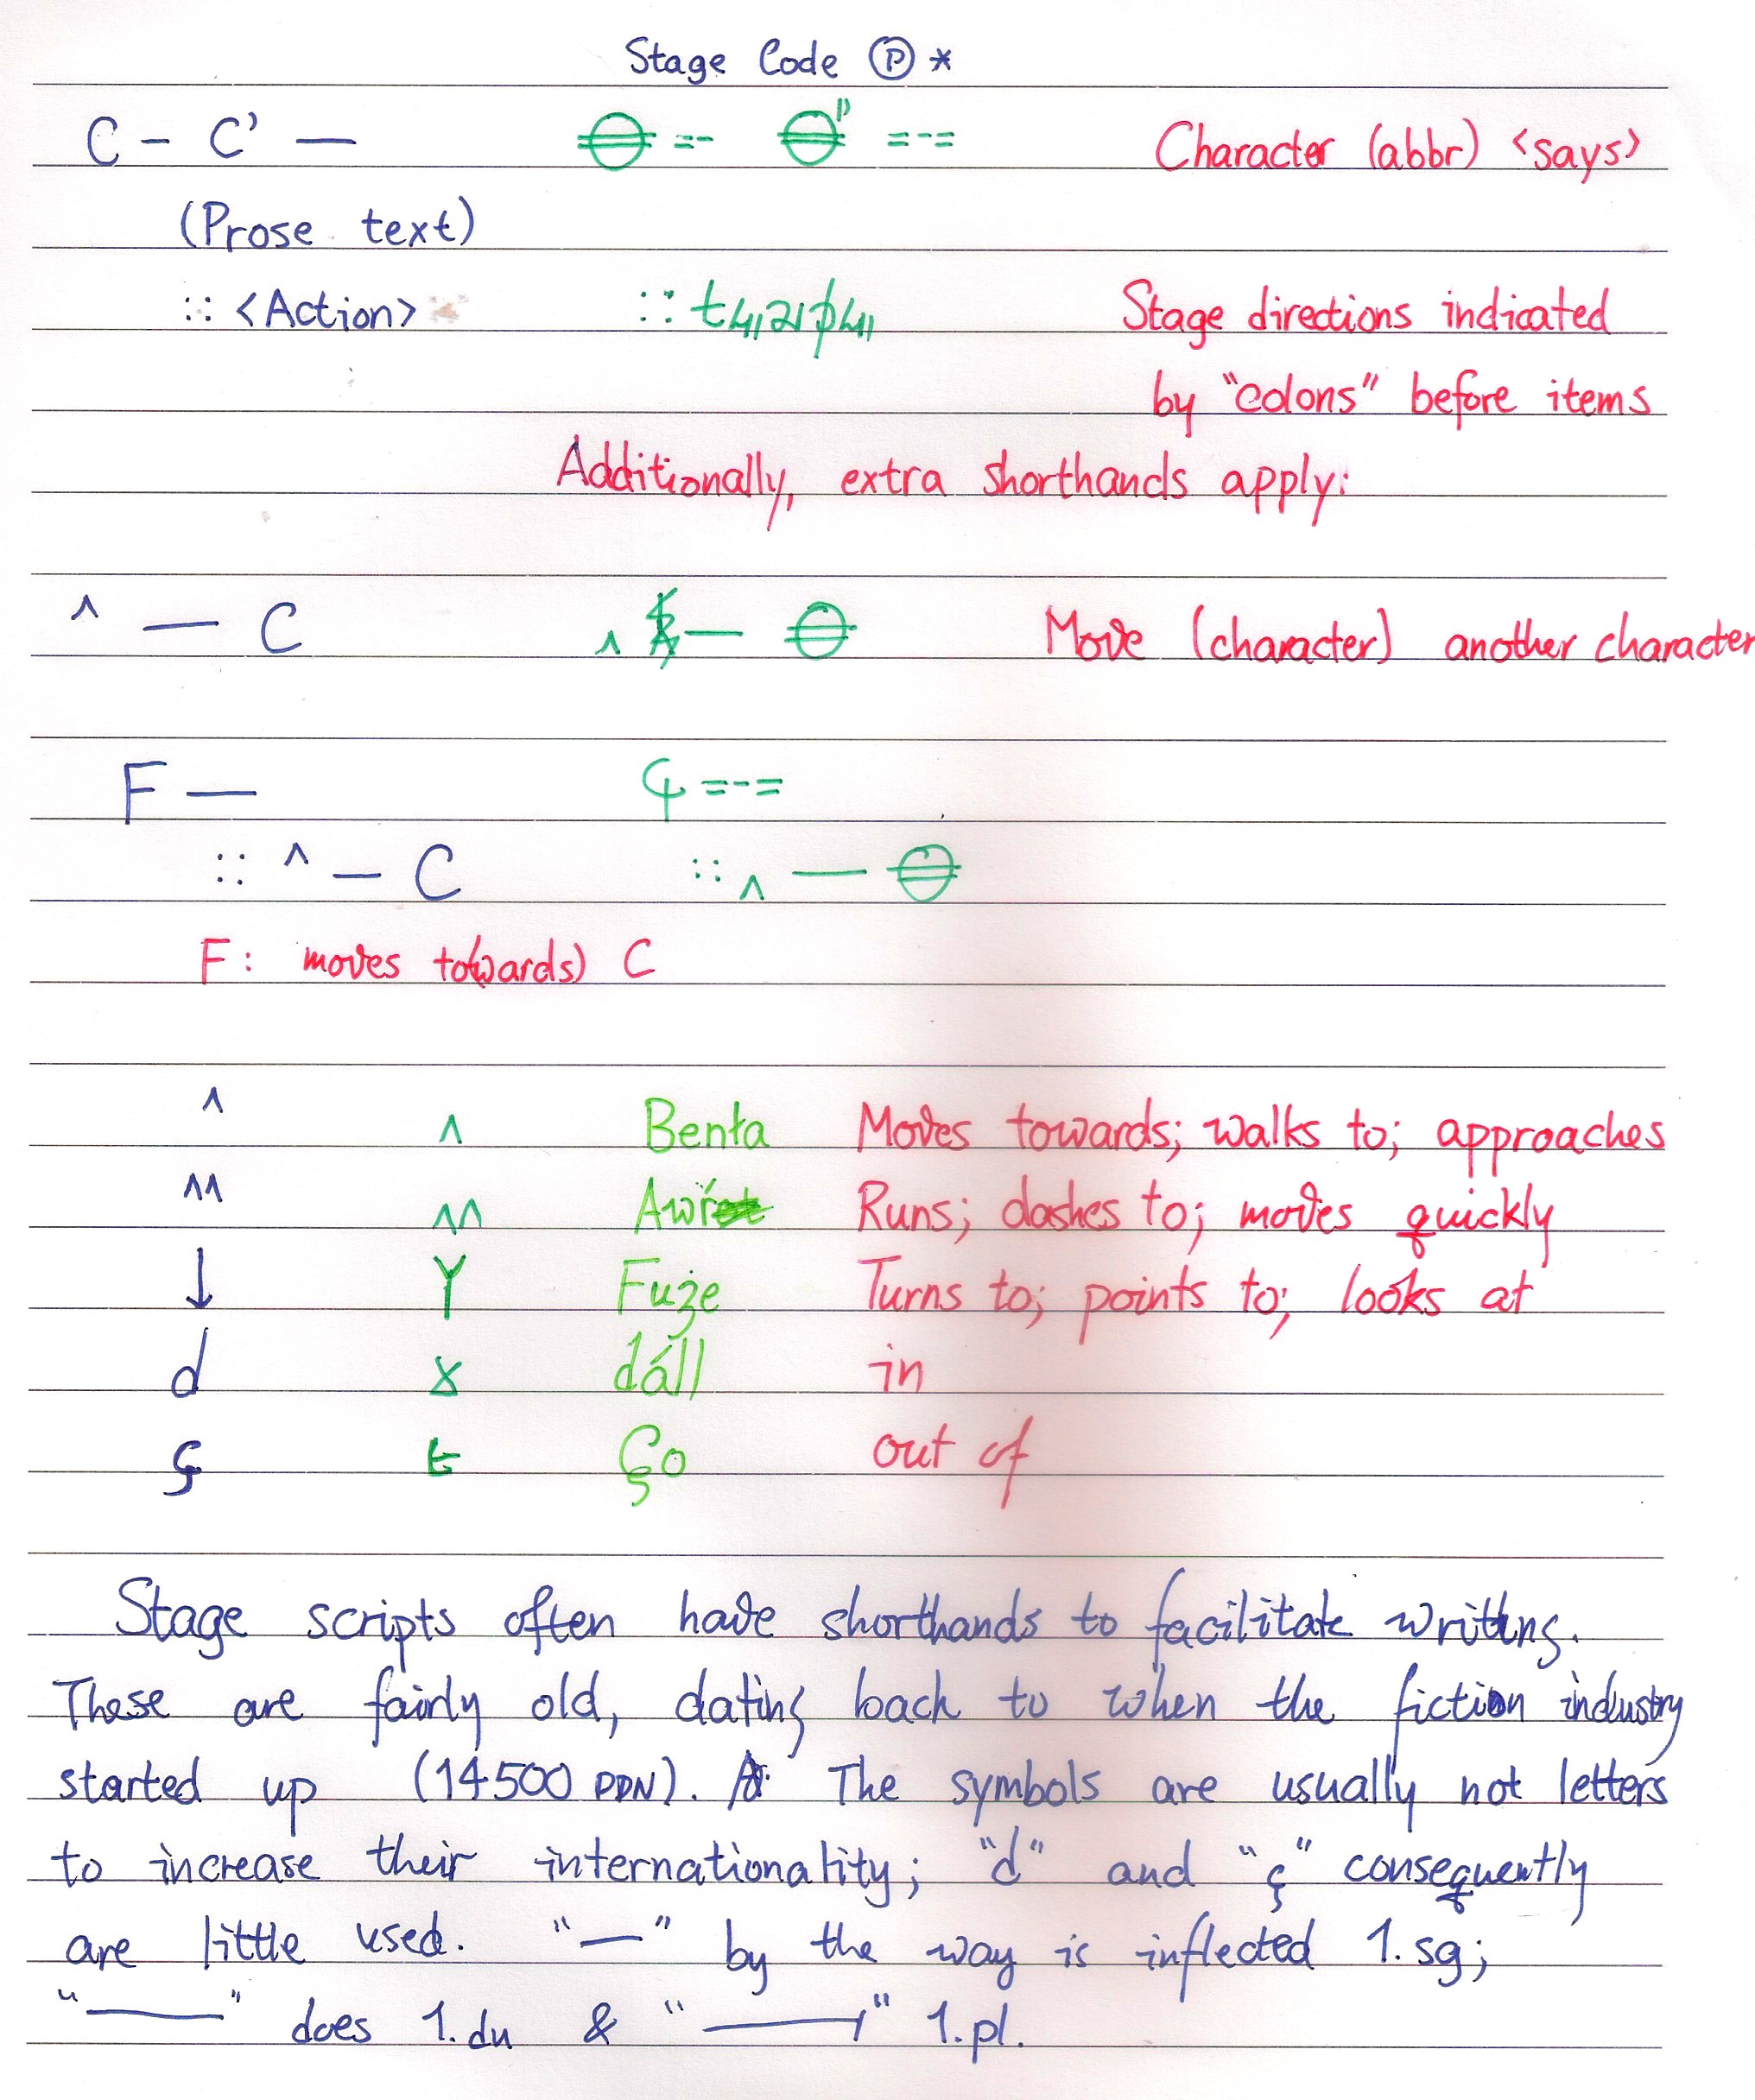 Stage Code Ⓟ *
C – C’ — Character (abbr) <says>
(Prose text)
:: <Action> :: Stage directions indicated
by “colons” before items
Additionally, extra shorthands apply:
^ — C ^ — Move (character) another character
F —
:: ^ — C :: ^ —
F: moves to(wards) C
^ ^ Benta Moves towards; walks to; approaches
^^ ^^ Runs; dashes to; moves quickly
↓ Y Fuże Turns to; points to; looks at
d dáll in
ç Ço out of
Stage scripts often have shorthands to facilitate writing.
These are fairly old, dating back to when the fiction industry
started up (14500 DDN). The symbols are usually not letters
to increase their internationality; “d” and “ç” consequently
are little used. “—” by the way is inflected 1.sg;
“——” does 1.du & “" 1.pl.